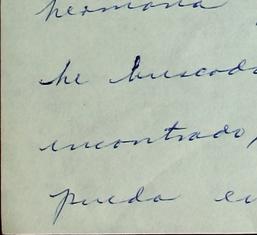 hermana
he buscado
encontrado,
pueda en